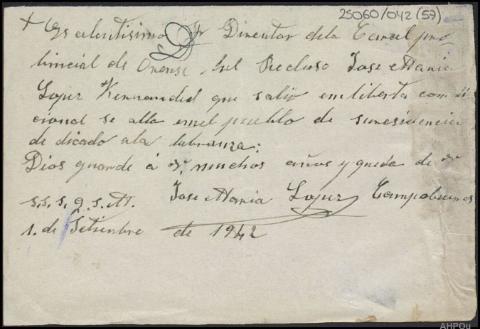 25060/042 (57)
+ Es celentisimo Sr Director dela Carcel pro
bincial de Orense, hel Recluso Jose Maria
Lopez Hernandez que salio enliberta com di
cional se alla enel pueblo de suresidencia
de dicado ala labranza:
Dios guarde á V. muchos años y queda de V.
s.s.s. q. s. M. Jose Maria Lopez Campobecerros
1. de Setienbre de 1942
AHPOu